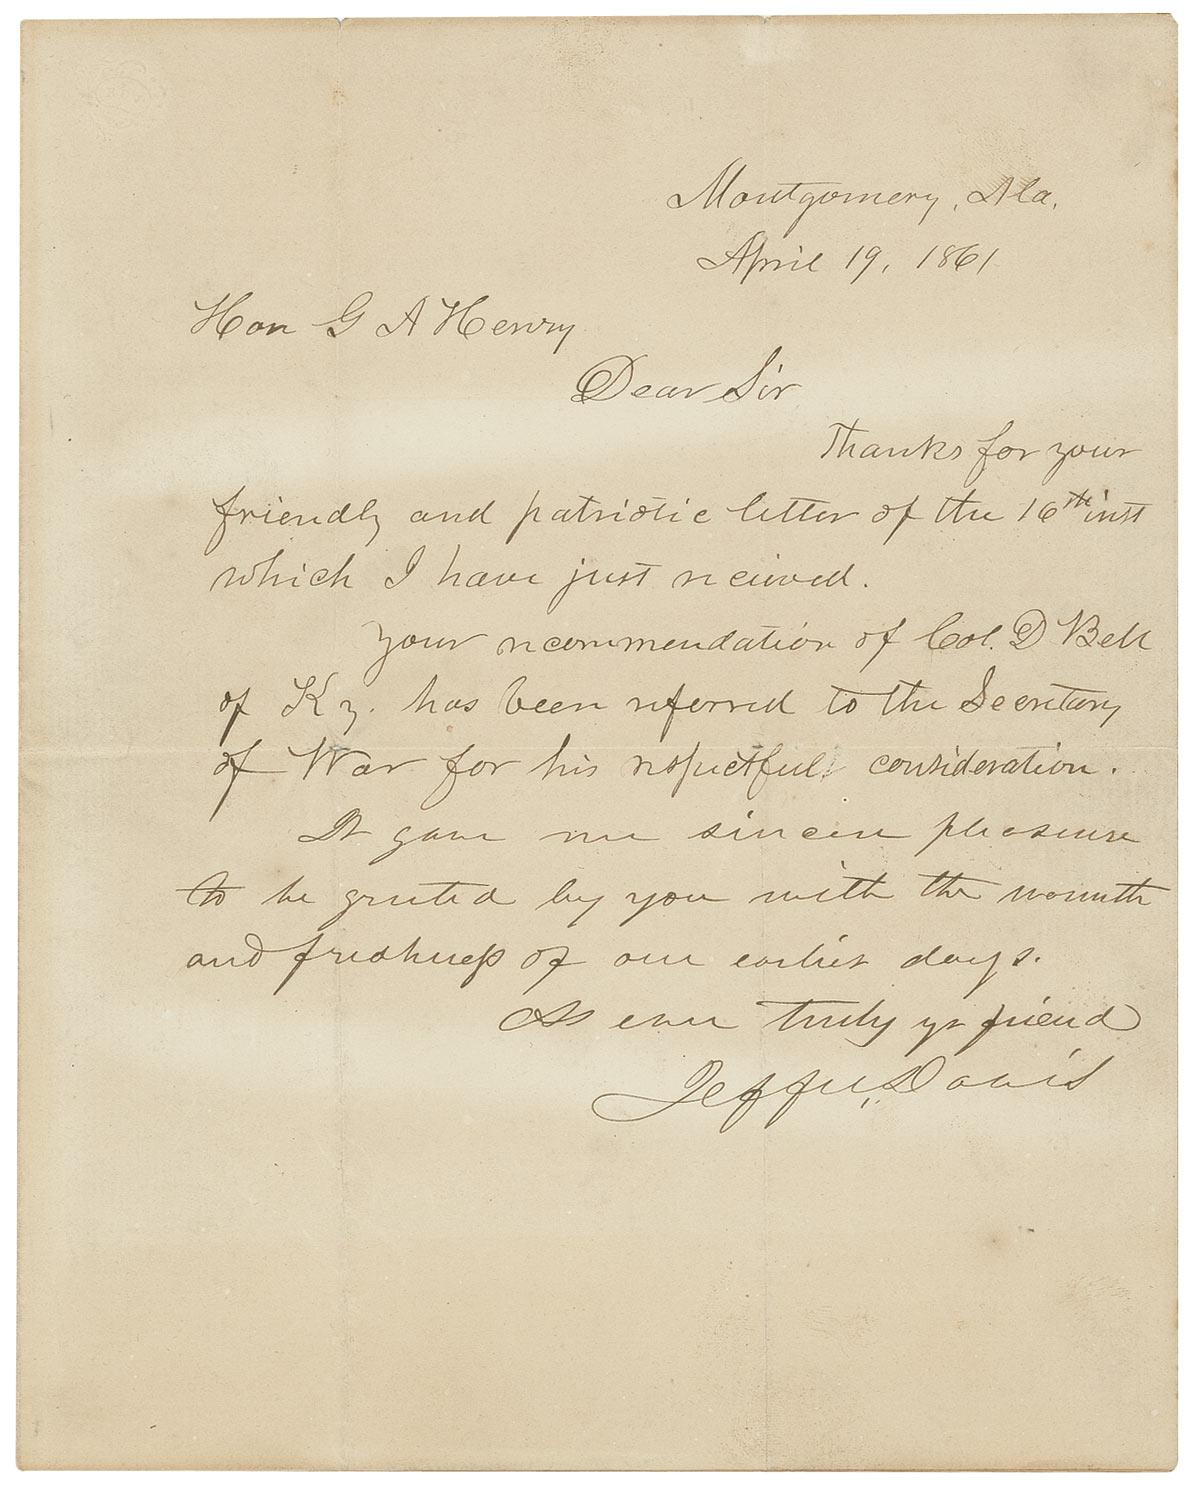 Montgomery, Ala.
April 19, 1861
Hon G A Henry
Dear Sir
Thanks for your
friendly and patriotic letter of the 16th inst
which I have just recieved.
Your recommendation of Col. D Bell
of Ky. has been referred to the Secretary
of War for his respectful consideration.
It gave me sincere pleasure
to be greeted by you with the warmth
and freshness of our earlier days.
As ever truly yr friend
Jeffn, Davis